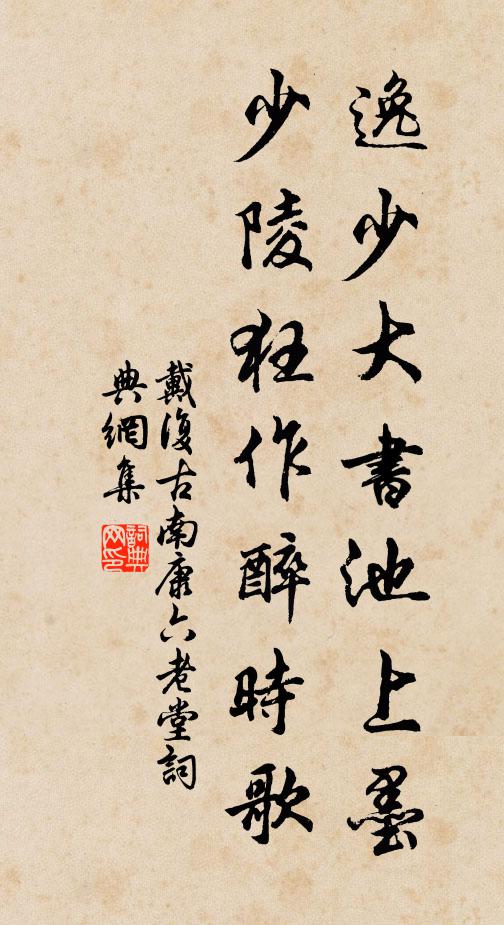 逸少大書池上墨
少陵狂作醉時歌
戴復古南康六老堂詞
典網集
詞典
網印